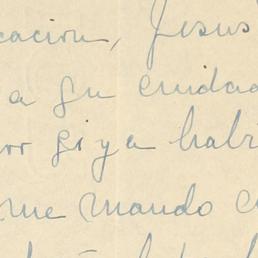 cacion, Jesus
a su cuidad
por si ya habr
me mando c